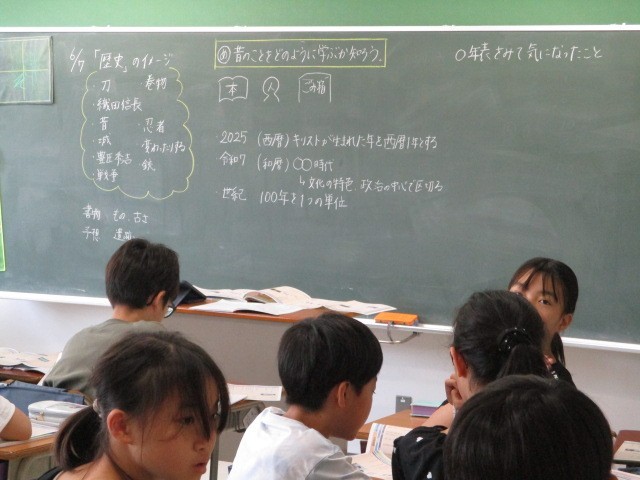 6/7 「歴史」のイメージ
・刀 巻物
・織田信長
・昔 ・忍者
・城 変わったりする
・豊臣秀吉 鉄
・戦争
書物 その、古さ
予想
め 昔のことをどのように学ぶか知ろう。
本
人
2025 (西暦) キリストが生まれた年を西暦1年とする
令和7 (和暦) ○○時代
↳文化の特色 政治の中心で区切る
・世紀 100年を1つの単位
○年表をみて気になったこと